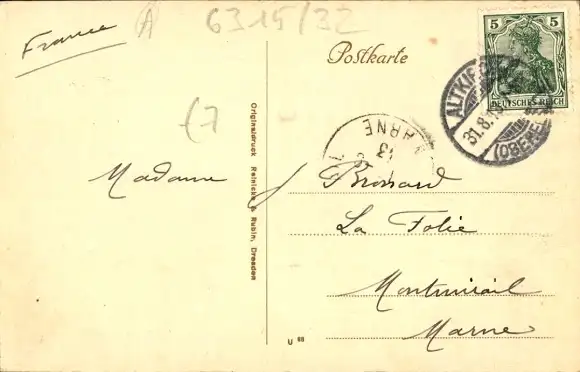 France
A 6315/32
Postkarte
5 5
DEUTSCHES REICH
ALTKIRCH
31.8.13
(OBERELS
MARNE
13
Originaldruck Reinicke & Rubin, Dresden
Madame J Brossard
La Folie
Montmirail
Marne
U 88